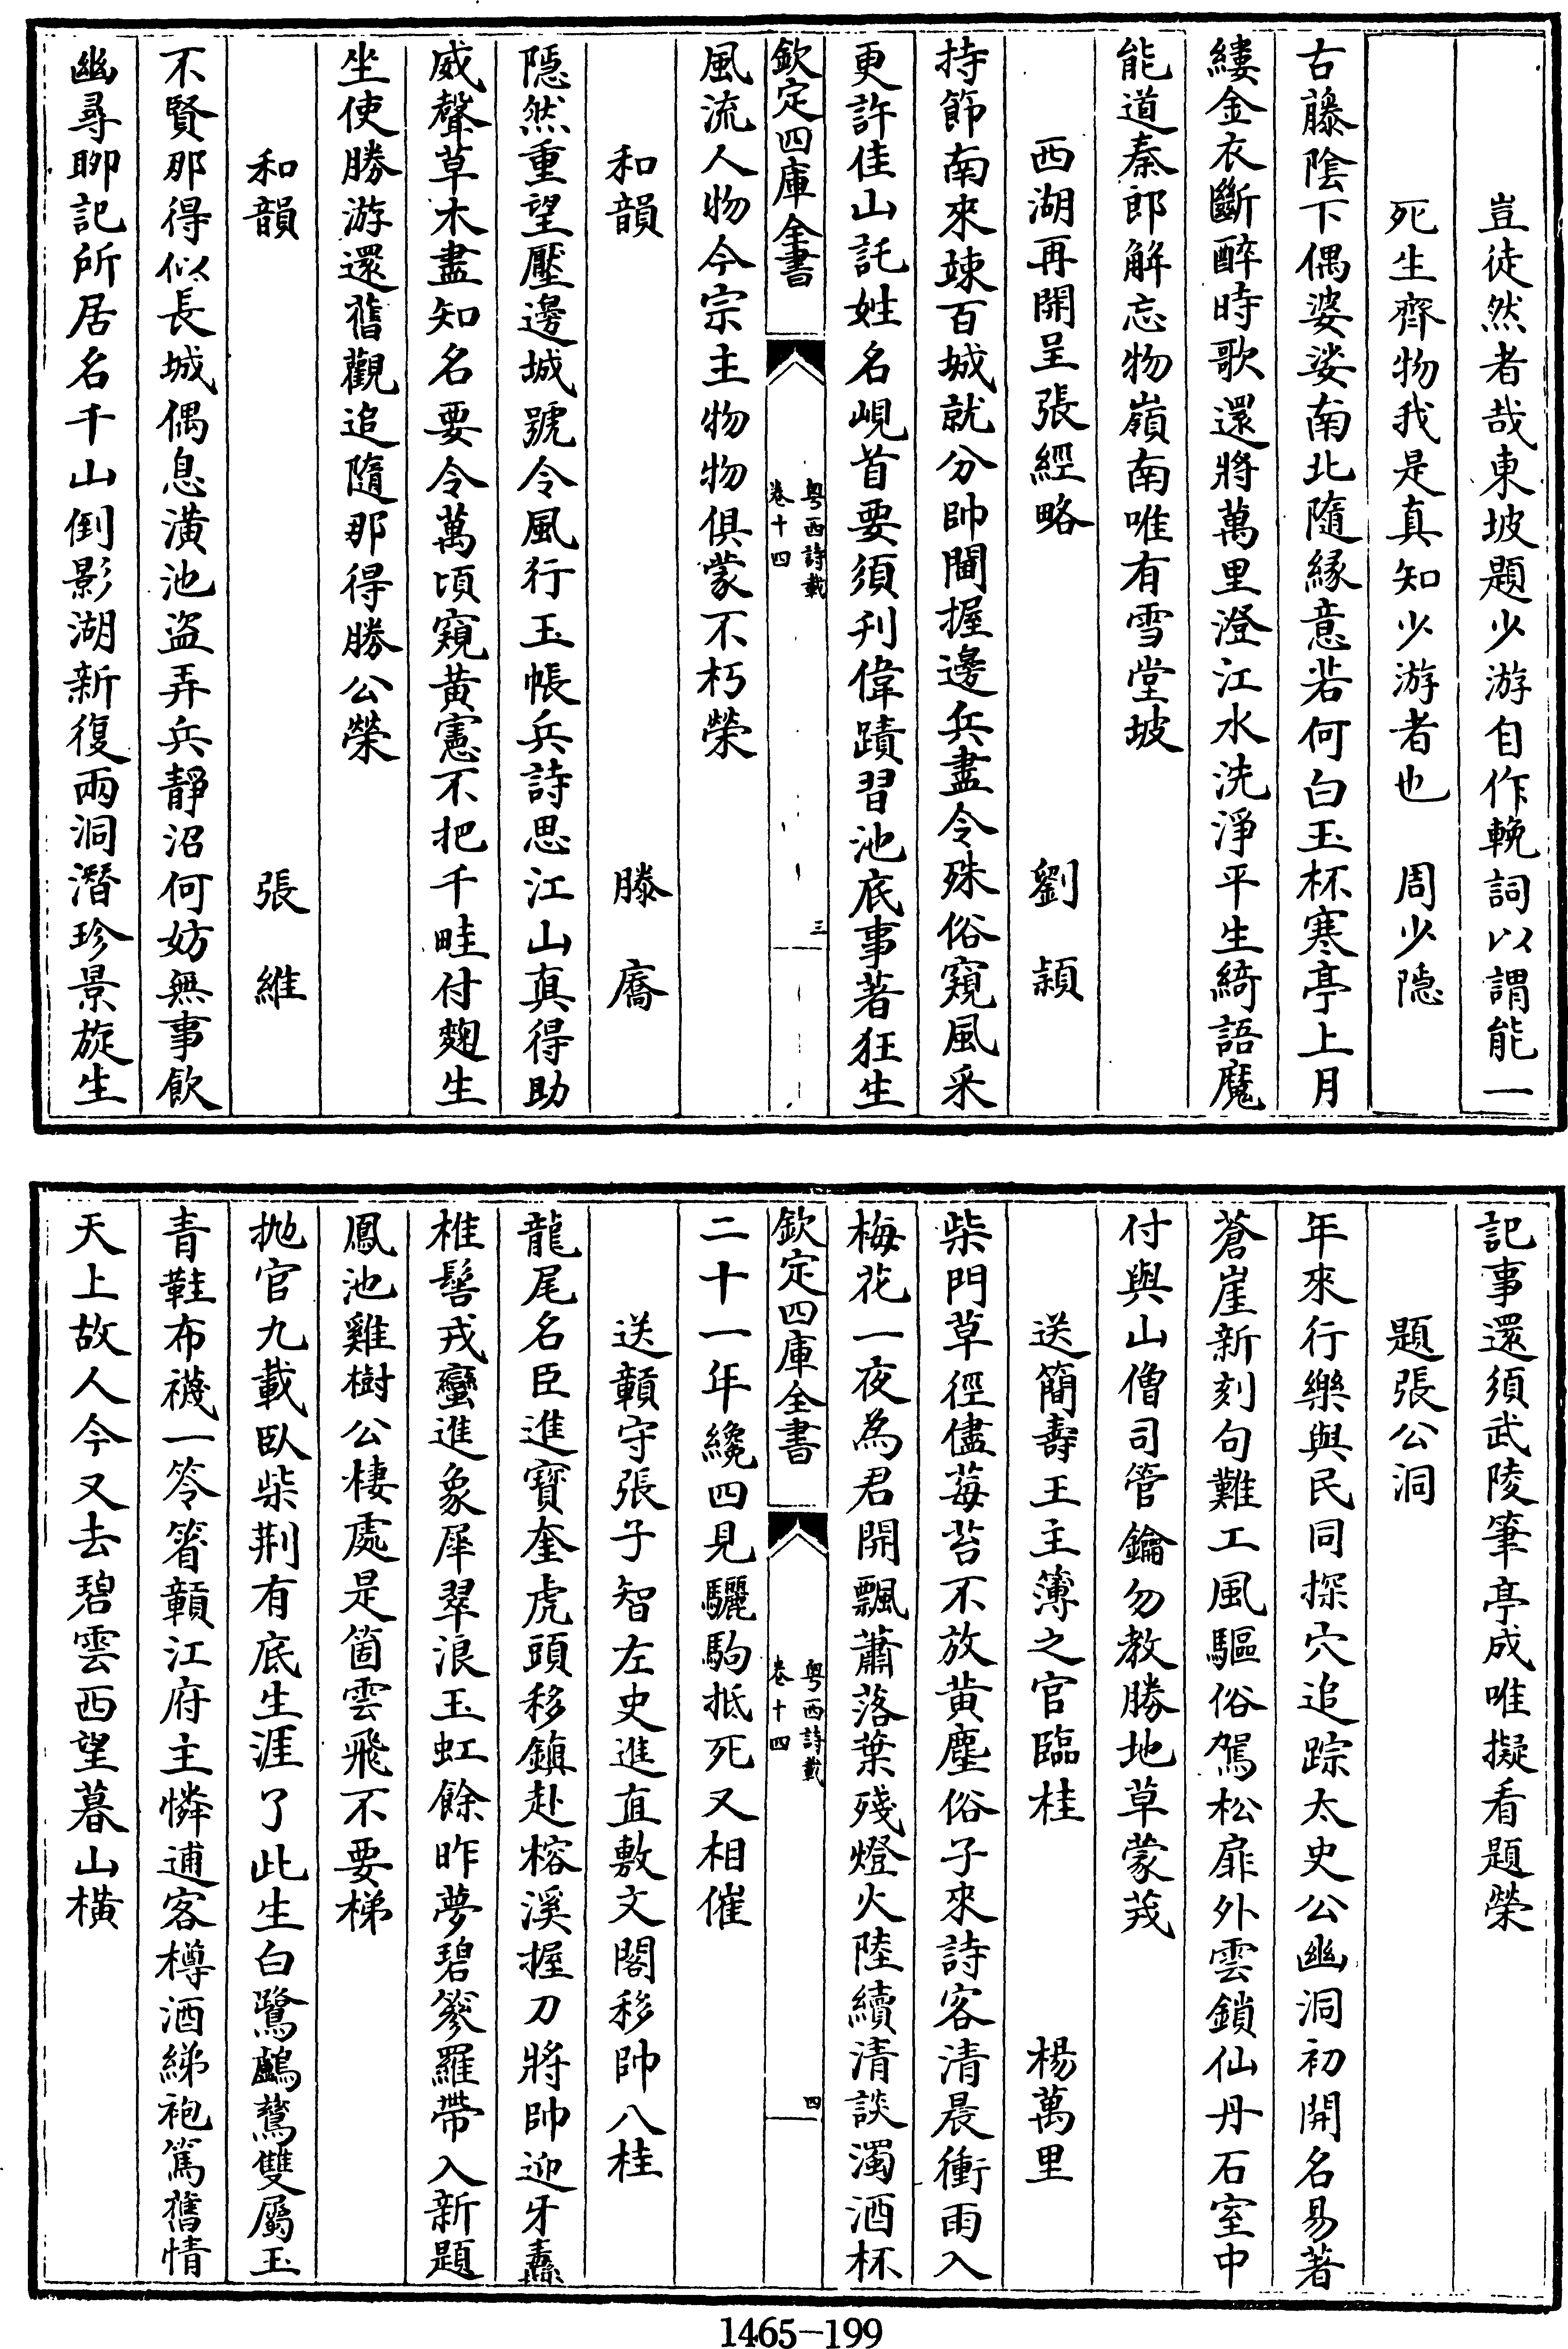 豈徒然者哉東坡題少游自作輓詞以謂能一
死生齊物我是真知少游者也　周少隱
古藤陰下偶婆娑南北隨緣意若何白玉杯寒亭上月
縷金衣斷醉時歌還將萬里澄江水洗淨平生綺語魔
能道秦郎解忘物嶺南唯有雪堂坡
西湖再開呈張經略　劉潁
持節南來竦百城就分帥閫握邊兵盡令殊俗窺風采
更許佳山託姓名峴首要須刋偉蹟習池底事著狂生
欽定四庫全書
粵西詩載
卷十四
三
風流人物今宗主物物俱蒙不朽榮
和韻　滕㢗
隱然重望壓邊城號令風行玉帳兵詩思江山真得助
威聲草木盡知名要令萬頃窺黃憲不把千畦付麴生
坐使勝游還舊觀追隨那得勝公榮
和韻　張維
不賢那得似長城偶息潢池盜弄兵靜沼何妨無事飲
幽尋聊記所居名千山倒影湖新復兩洞潛珍景旋生
記事還須武陵筆亭成唯擬看題榮
題張公洞
年來行樂與民同探穴追踪太史公幽洞初開名易著
蒼崖新刻句難工風驅俗駕松扉外雲鎖仙丹石室中
付與山僧司管鑰勿教勝地草蒙茂
送簡壽王主簿之官臨桂　楊萬里
柴門草徑儘莓苔不放黄塵俗子來詩客清晨衝雨入
梅花一夜為君開飄蕭落葉殘燈火陸續清談濁酒杯
欽定四庫全書
粵西詩載
卷十四
四
二十一年纔四見驪駒抵死又相催
送贑守張子智左史進直敷文閣移帥八桂
龍尾名臣進寳奎虎頭移鎮赴榕溪握刀將帥迎牙纛
椎髻戎蠻進象犀翠浪玉虹餘昨夢碧篸羅帶入新題
鳳池雞樹公棲處是箇雲飛不要梯
抛官九載臥柴荆有底生涯了此生白鷺鸕鶿雙屬玉
青鞋布襪一笭箵贑江府主憐逋客樽酒綈袍篤舊情
天上故人今又去碧雲西望暮山橫
1465-199